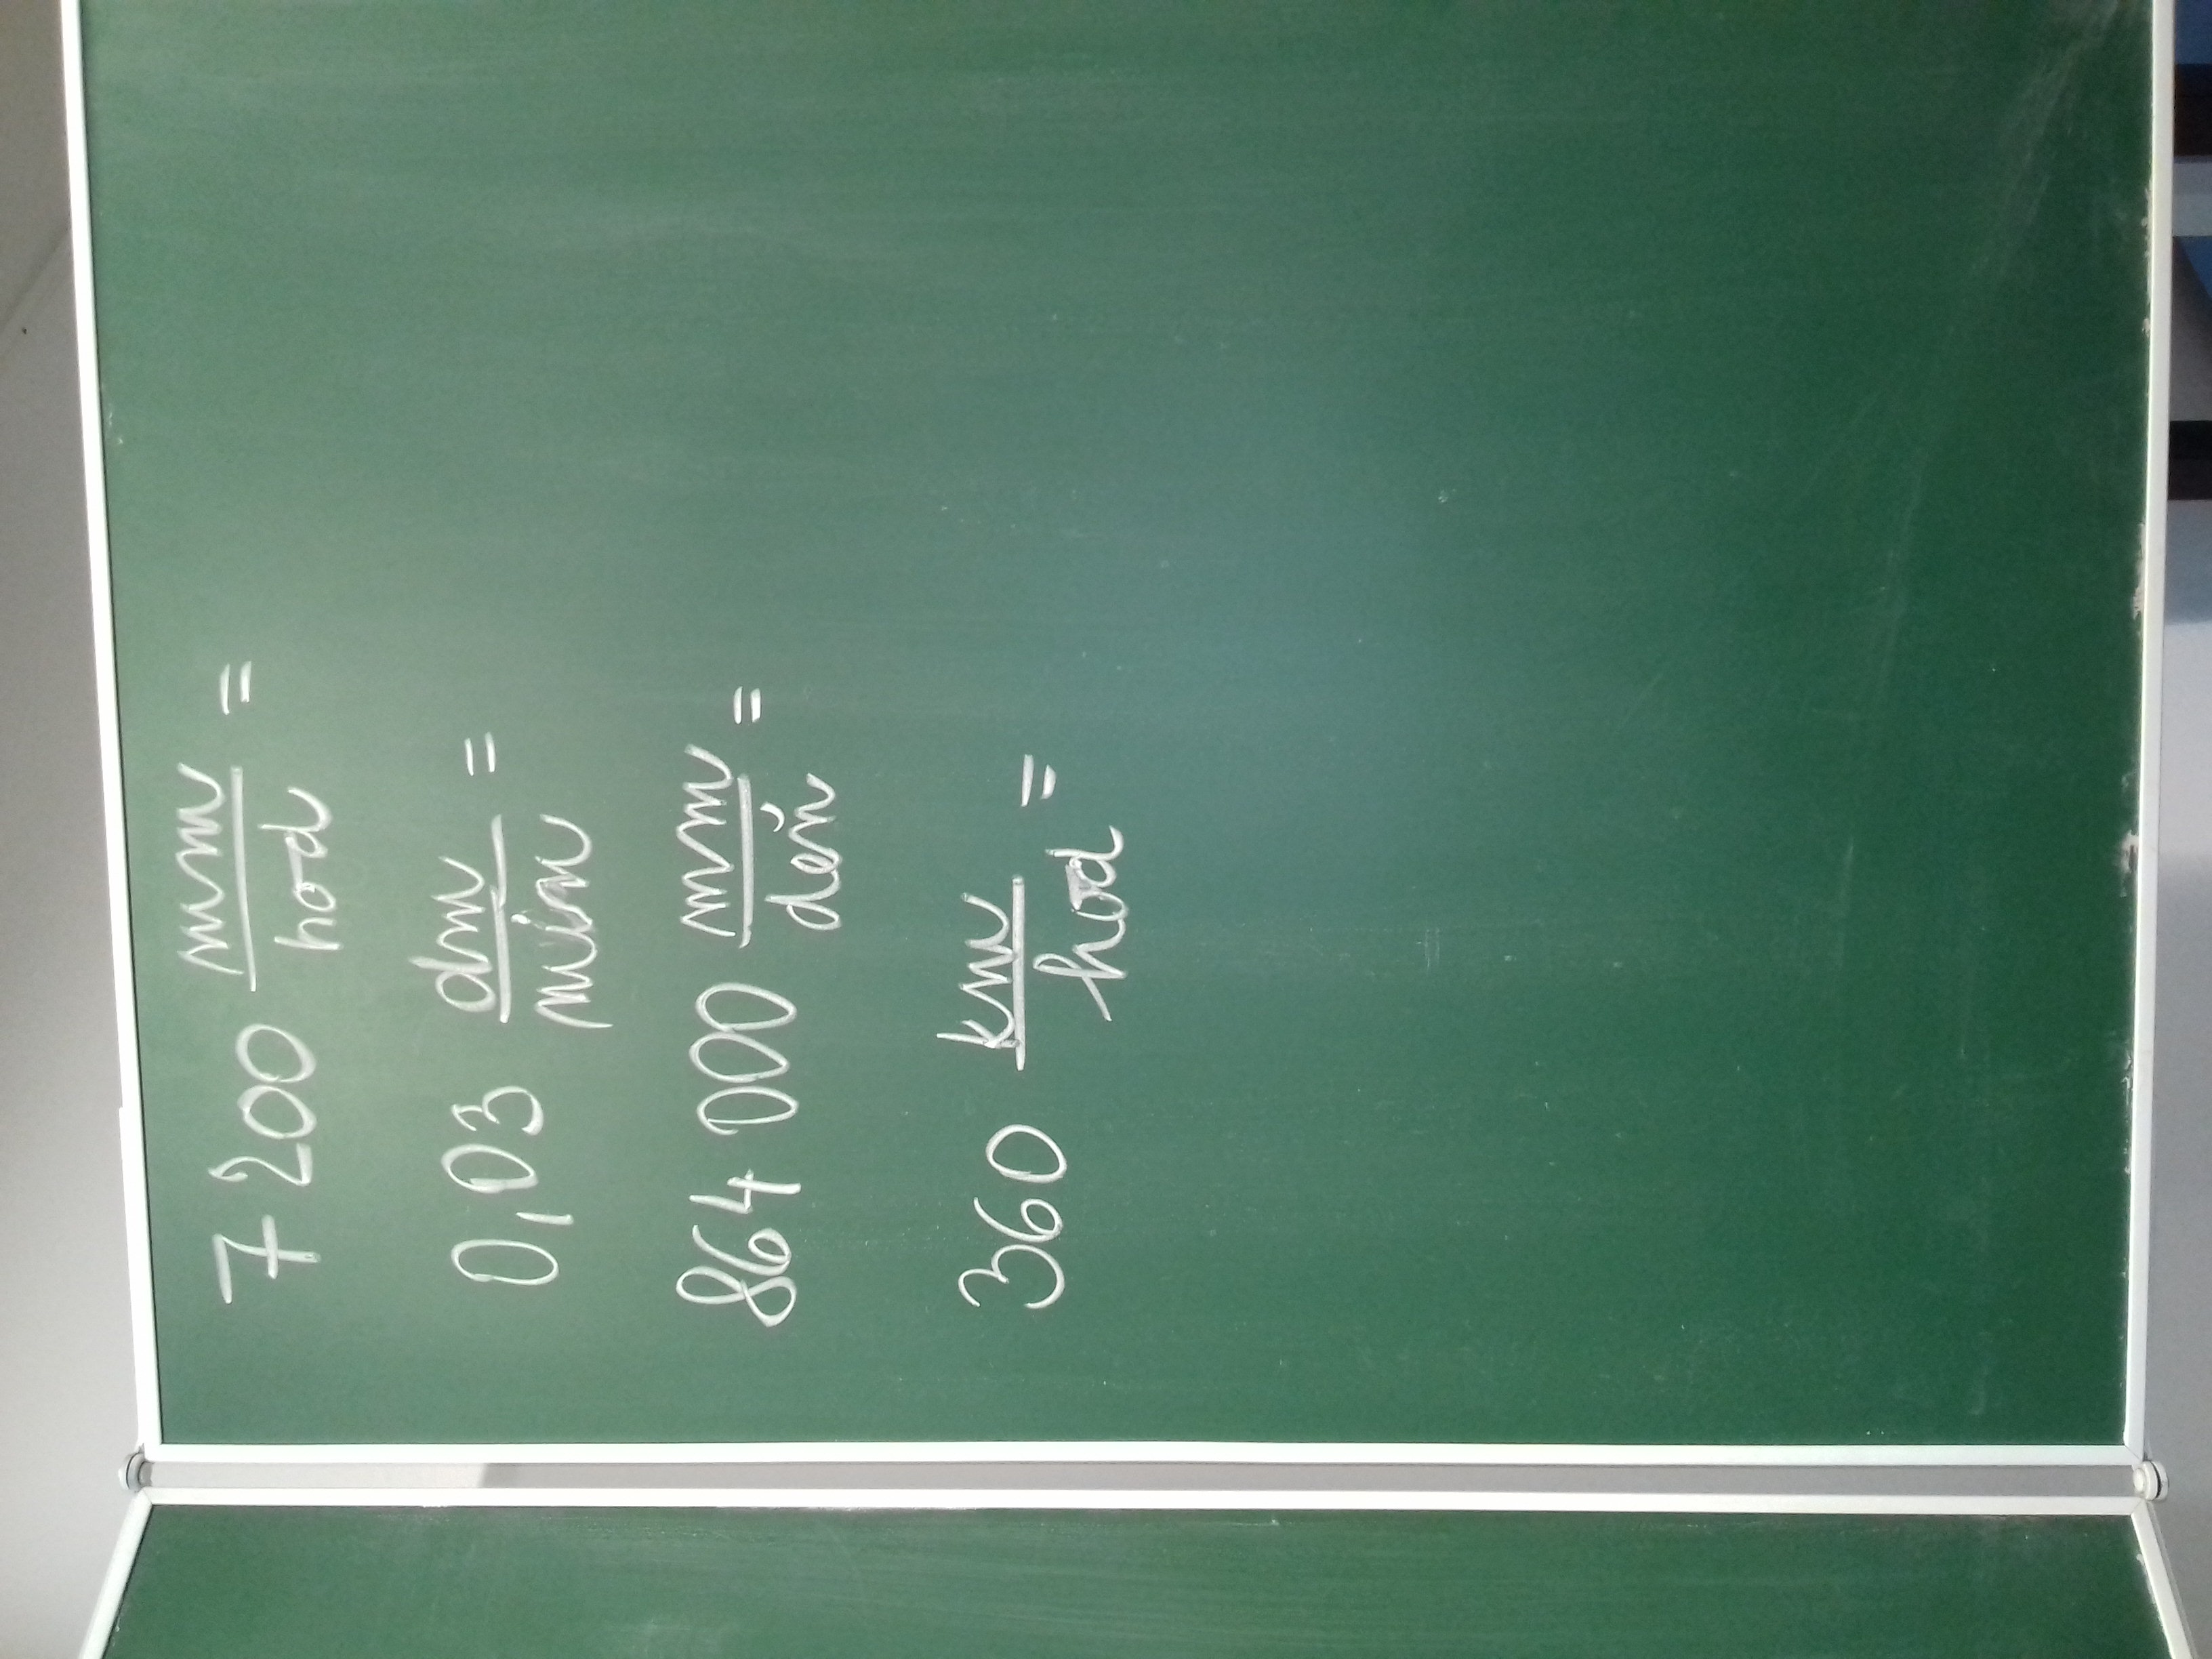 7 200 mm/hod =
0,03 dm/min =
864 000 mm/deň =
360 km/hod =